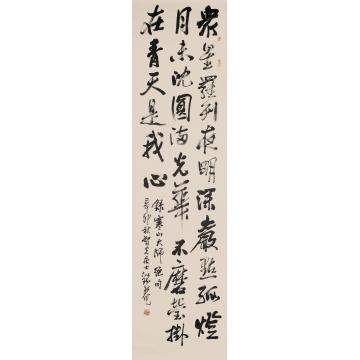 眾星羅列夜明深巖點孤燈
月未沈圓滿光華不磨瑩掛
在青天是我心
錄寒山大師絕句
卯秋 居士